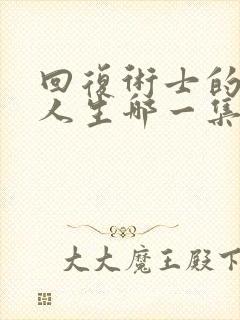 回復術士的
人生哪一集
大大魔王殿下